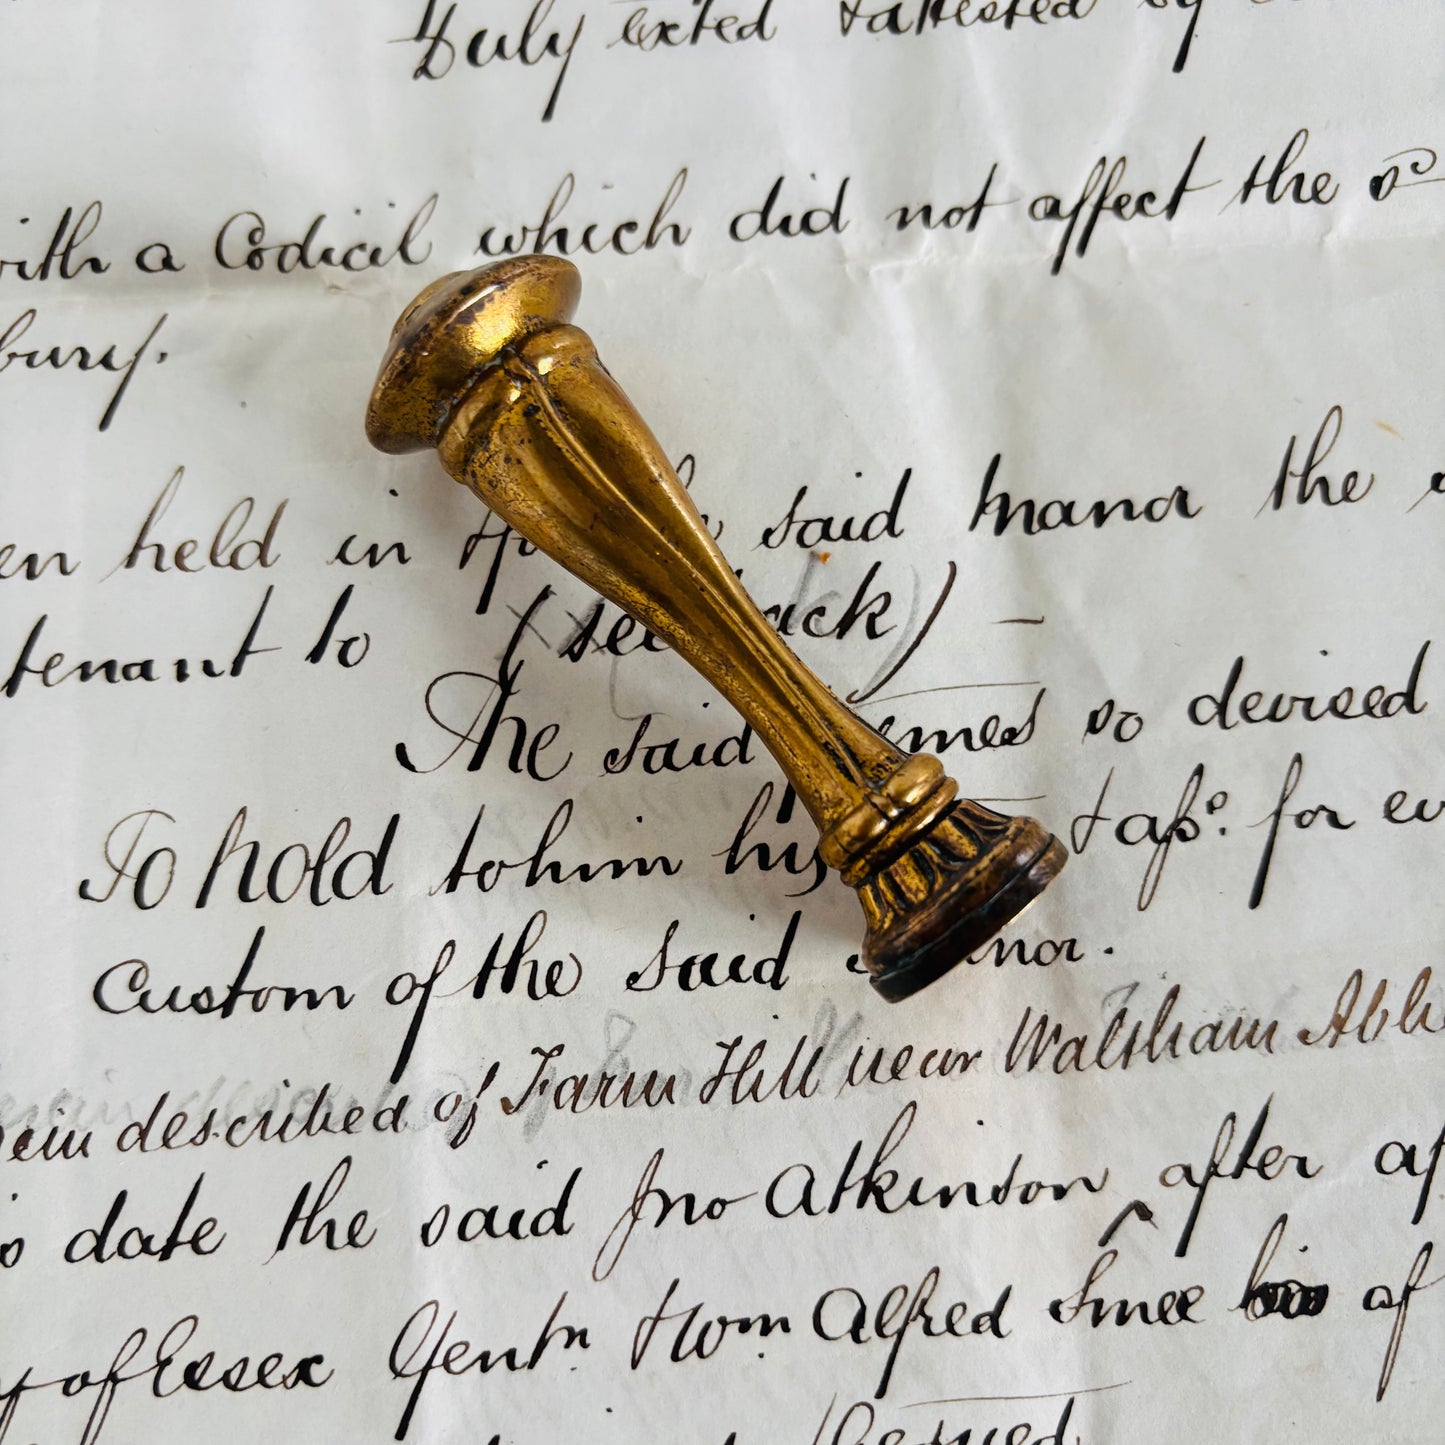 Duly exted & attested by
with a Codicil which did not affect the sd
bury.
en held in for the said Manor the
tenant to (see back) —
The said so devised
To hold to him his & ass. for ev
Custom of the said Manor.
ein described of Farm Hill near Waltham Abb
date the said Jno Atkinson after
of Essex Gentn & Wm. Alfred Smee of